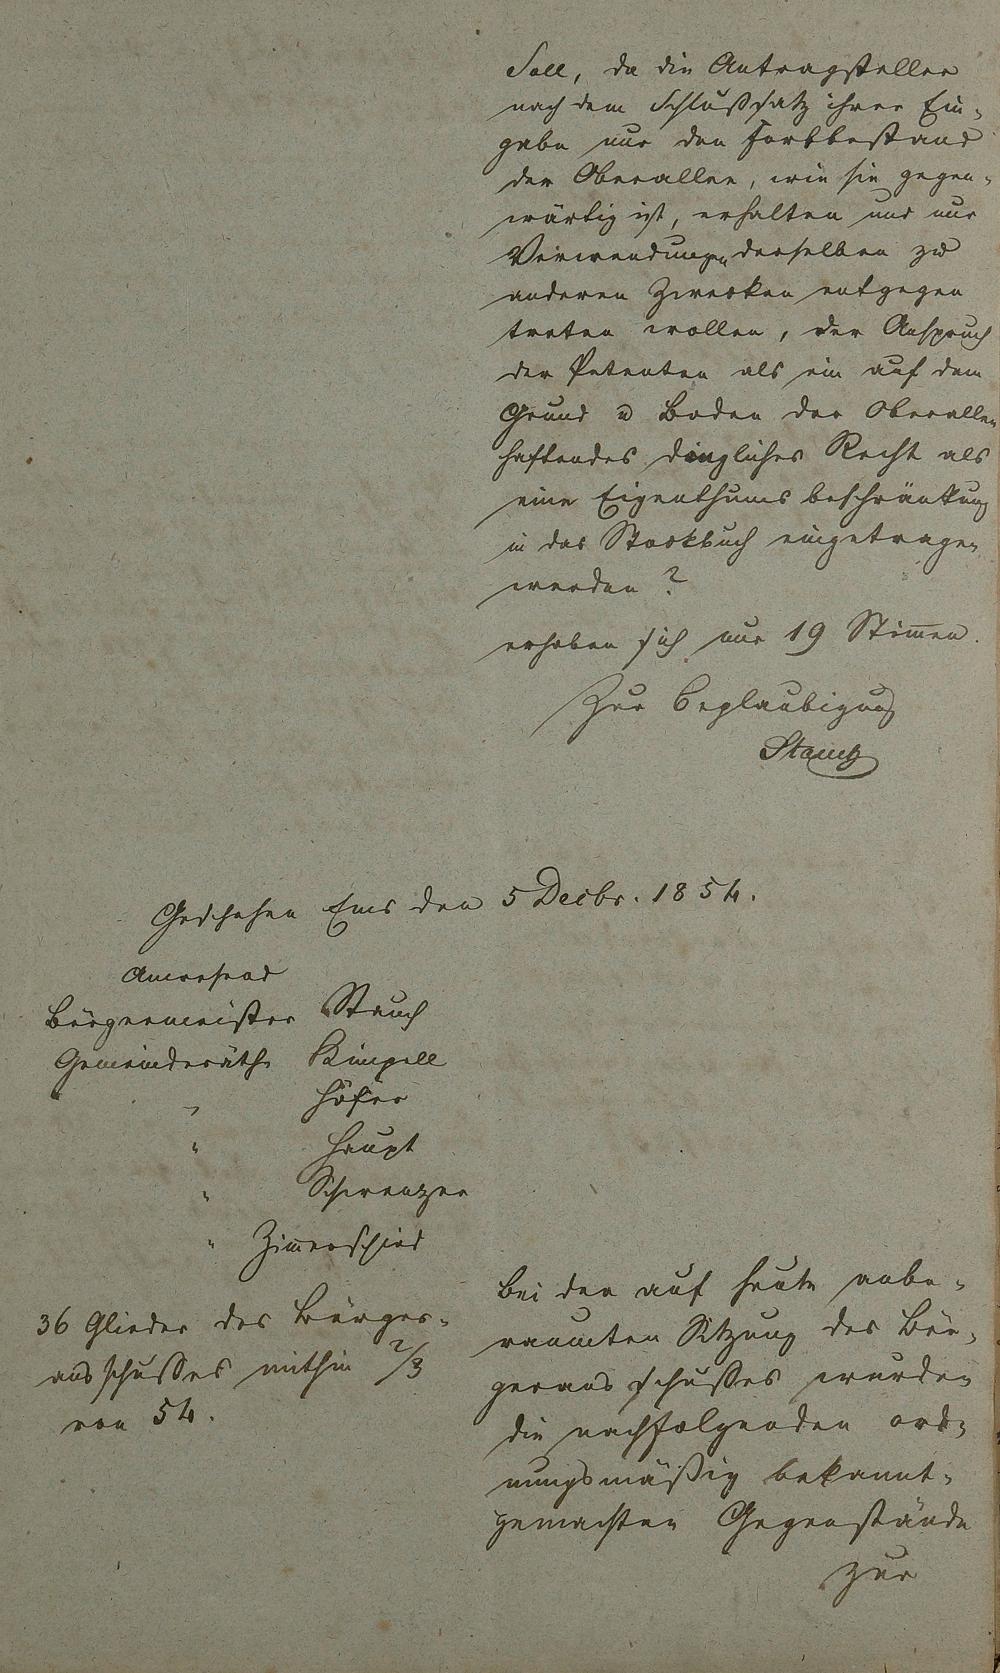 Soll, da die Antragsteller
nach dem Schlußsatz ihrer Ein-
gabe nur den Fortbestand
der Oberallee, wie sie gegen-
wärtig ist, erhalten und nur
Verwendungen derselben zu
anderen Zwecken entgegen
treten wollen, der Anspruch
der Petenten als ein auf dem
Grund u Boden der Oberallee
haftendes dingliches Recht als
eine Eigenthumsbeschränkung
in das Stockbuch eingetragen
werden?
erhoben sich nur 19 Stimmen.
Zur Beglaubigung
Geschehen Ems den 5 Decbr. 1854.
Anwesend
Bürgermeister Stauch
Gemeinderäthe Kimpell
" Höfer
" Haupt
" Schwenzer
" Zimmerschied
36 Glieder des Bürger-
ausschußes mithin 2/3
von 54.
Bei der auf heute anbe-
raumten Sitzung des Bür-
gerausschußes wurden
die nachfolgenden ord-
nungsmäßig bekannt-
gemachten Gegenstände
zur